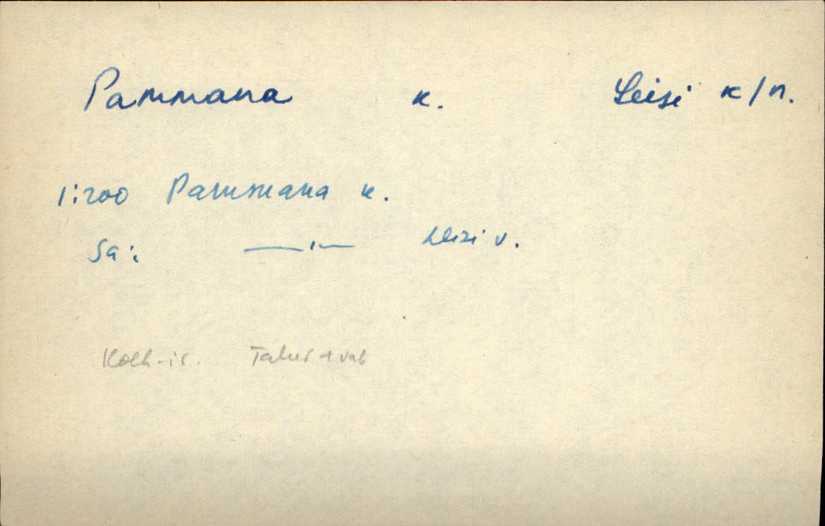 Pammana k. Leisi k/n.
1:200 Pammana k.
Sa: —"— Leisi v.
Kolh-is. Talus + vab